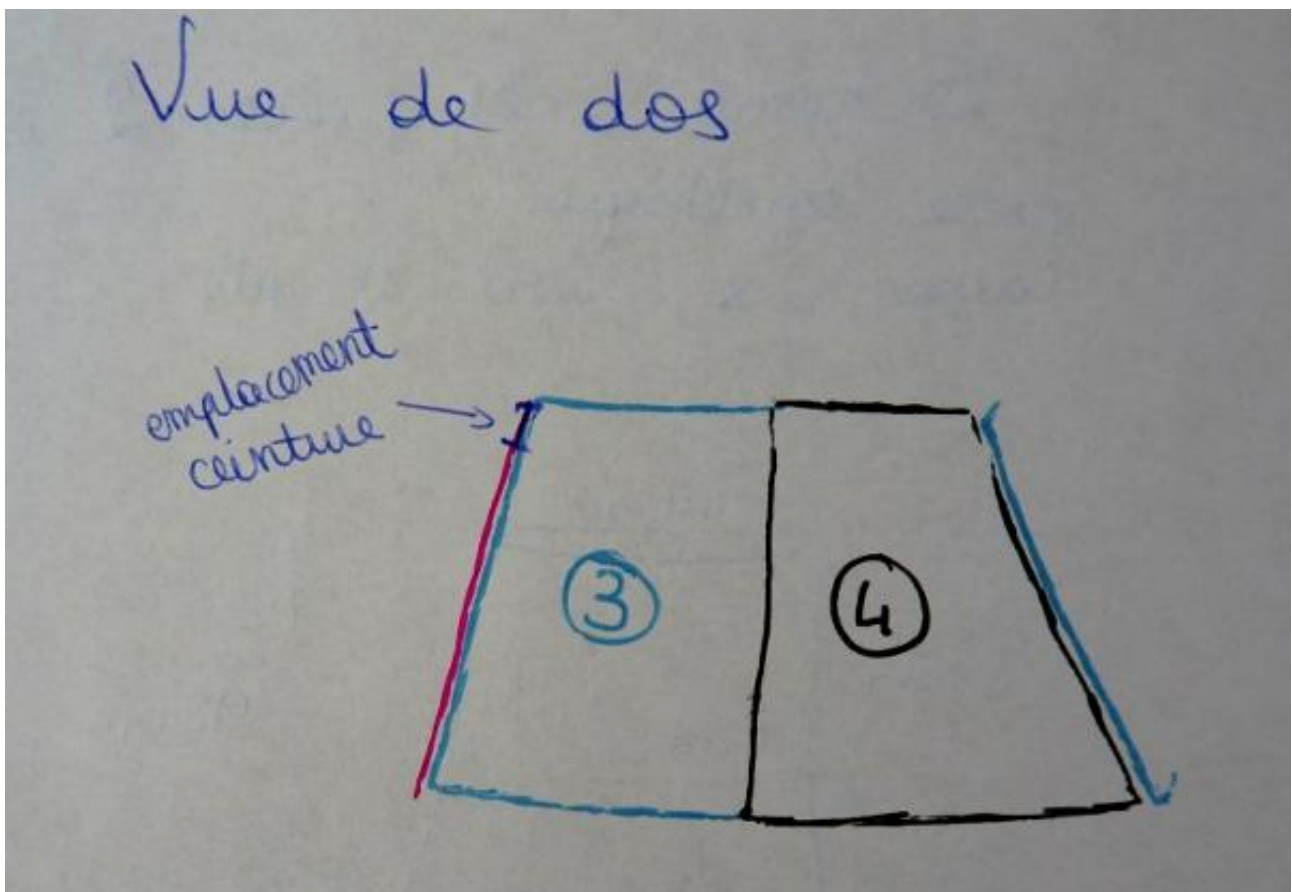 Vue de dos
emplacement
ceinture
3
4